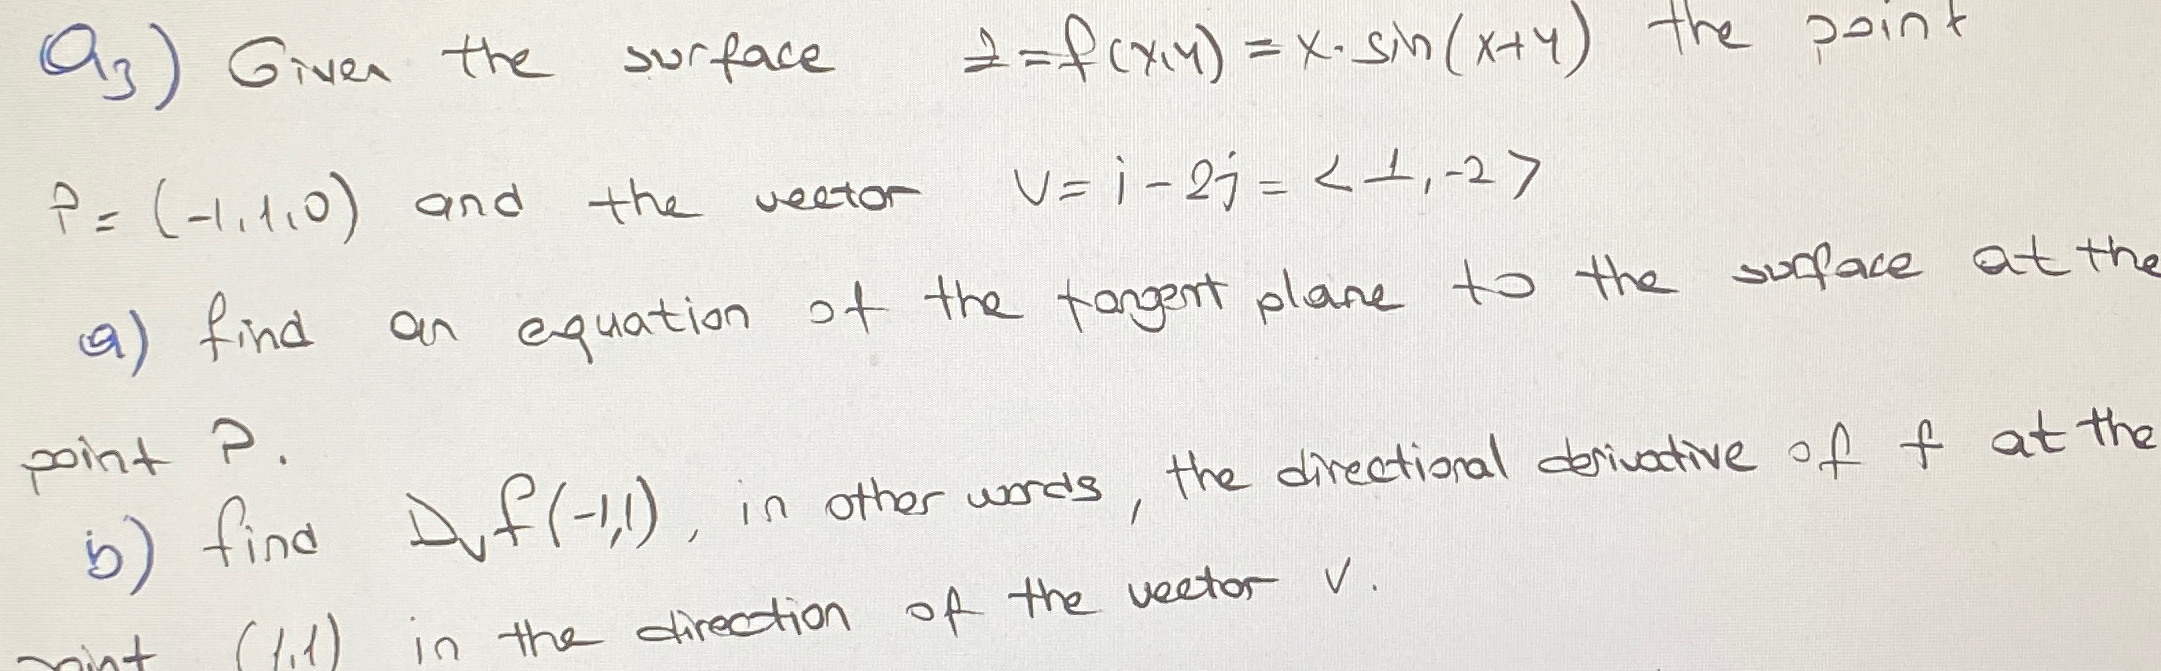 Q3) Given the surface z=f(x,y) = x. sin(x+y) the point
P= (-1,1,0) and the vector V= i - 2j = <1,-2>
a) find an equation of the tangent plane to the surface at the
point P.
b) find Dvf(-1,1), in other words, the directional derivative of f at the
point (1,1) in the direction of the vector V.